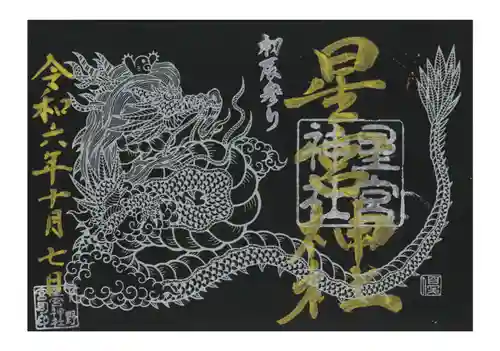 初辰参り
星宮神社
星宮神社
令和六年十月七日